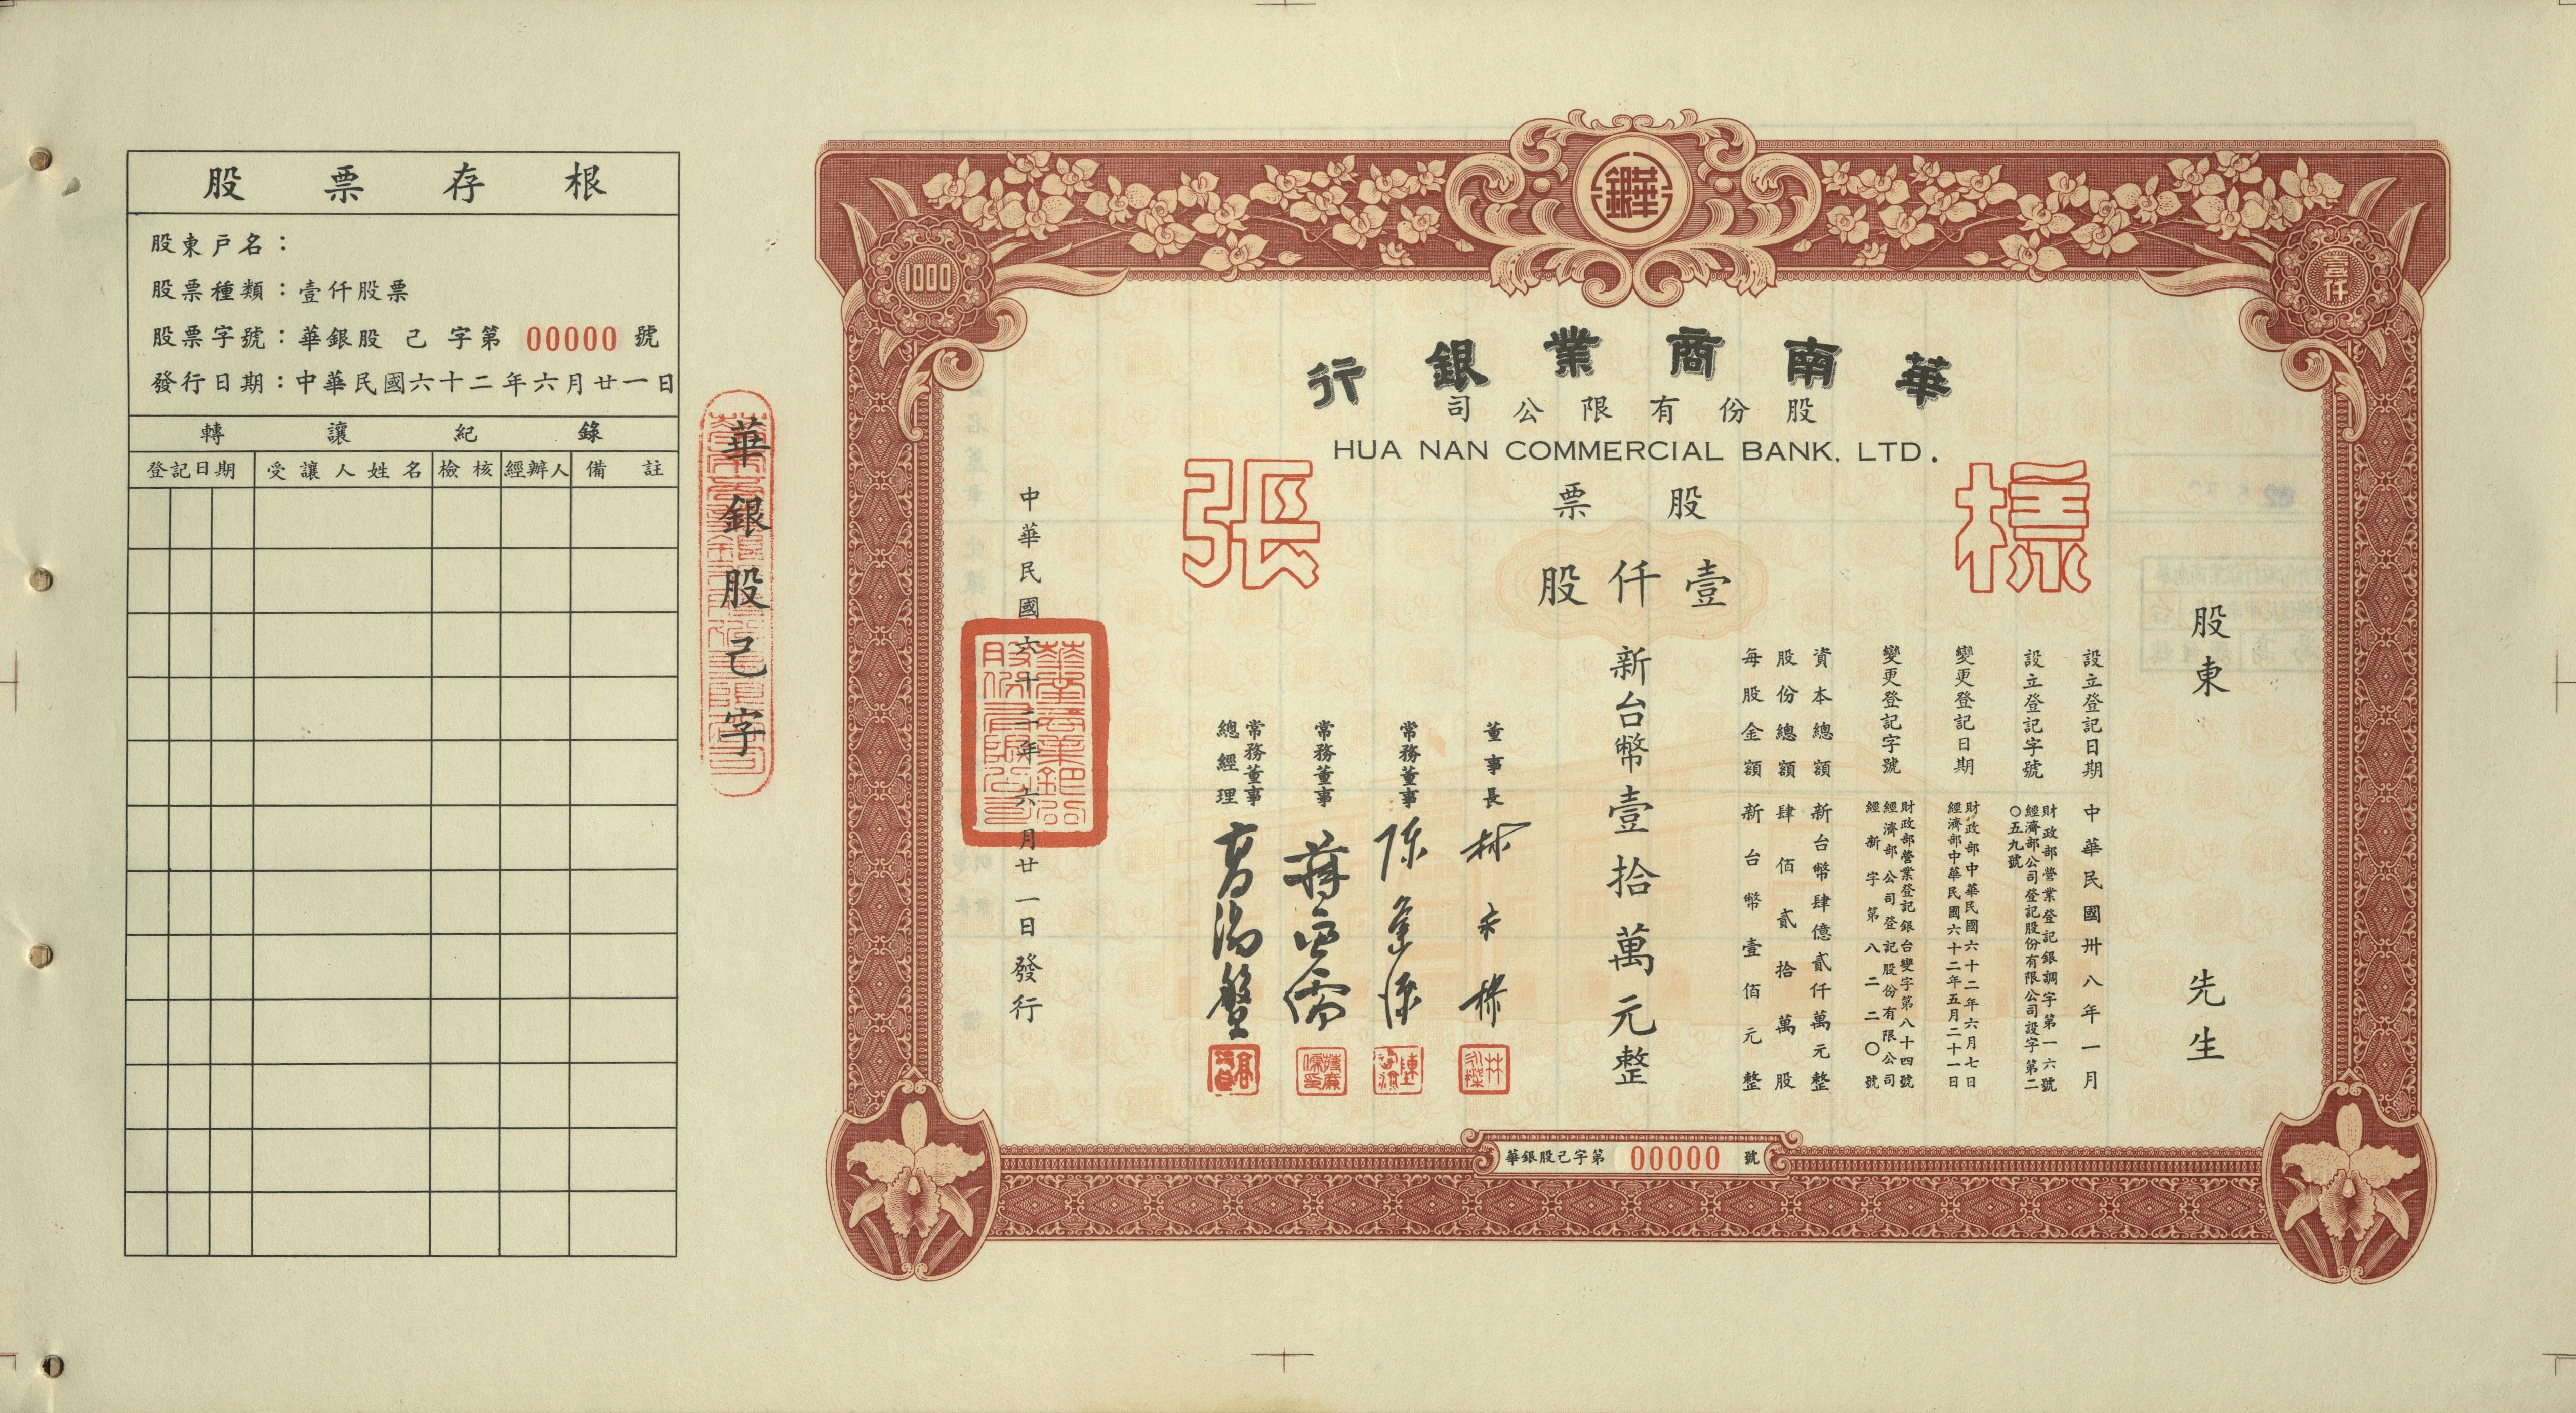 股票存根
股東戶名：
股票種類：壹仟股票
股票字號：華銀股 己 字第 00000 號
發行日期：中華民國六十二年六月廿一日
轉讓紀錄
登記日期 受讓人姓名 檢核 經辦人 備註
華銀股己字
1000
華銀
壹仟
華南商業銀行
股份有限公司
HUA NAN COMMERCIAL BANK, LTD.
標張
股票
壹仟股
股東 先生
設立登記日期 中華民國卅八年一月
設立登記字號 財政部營業登記銀調字第一六號
經濟部公司登記股份有限公司設字第二
〇五九號
變更登記日期 財政部中華民國六十二年六月七日
經濟部中華民國六十二年五月二十一日
變更登記字號 財政部營業登記銀台變字第八十四號
經濟部公司登記股份有限公司
經新字第八二二〇號
資本總額 新台幣肆億貳仟萬元整
股份總額 肆佰貳拾萬股
每股金額 新台幣壹佰元整
新台幣壹拾萬元整
董事長
常務董事
常務董事
常務董事
總經理
中華民國六十二年六月廿一日發行
華銀股己字第 00000 號